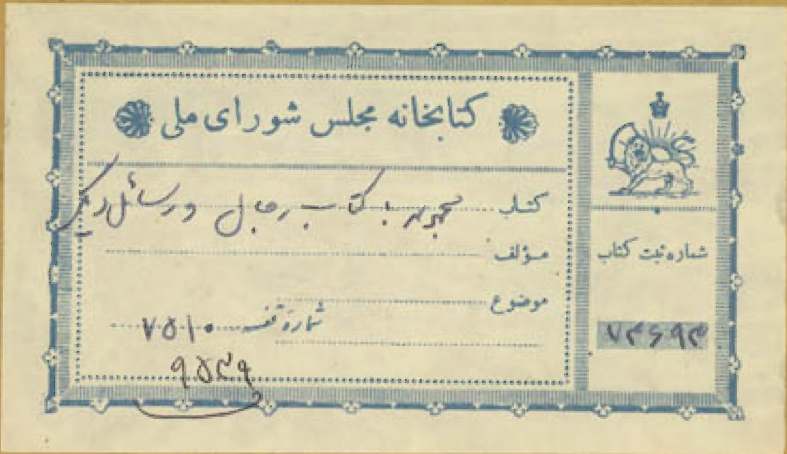 کتابخانه مجلس شورای ملی
کتاب مجموعه با کتاب رجال و رسائل دیگر
مؤلف
موضوع
شماره قفسه ۷۵۱۰
۹۵۳۹
شماره ثبت کتاب
۷۳۶۹۳